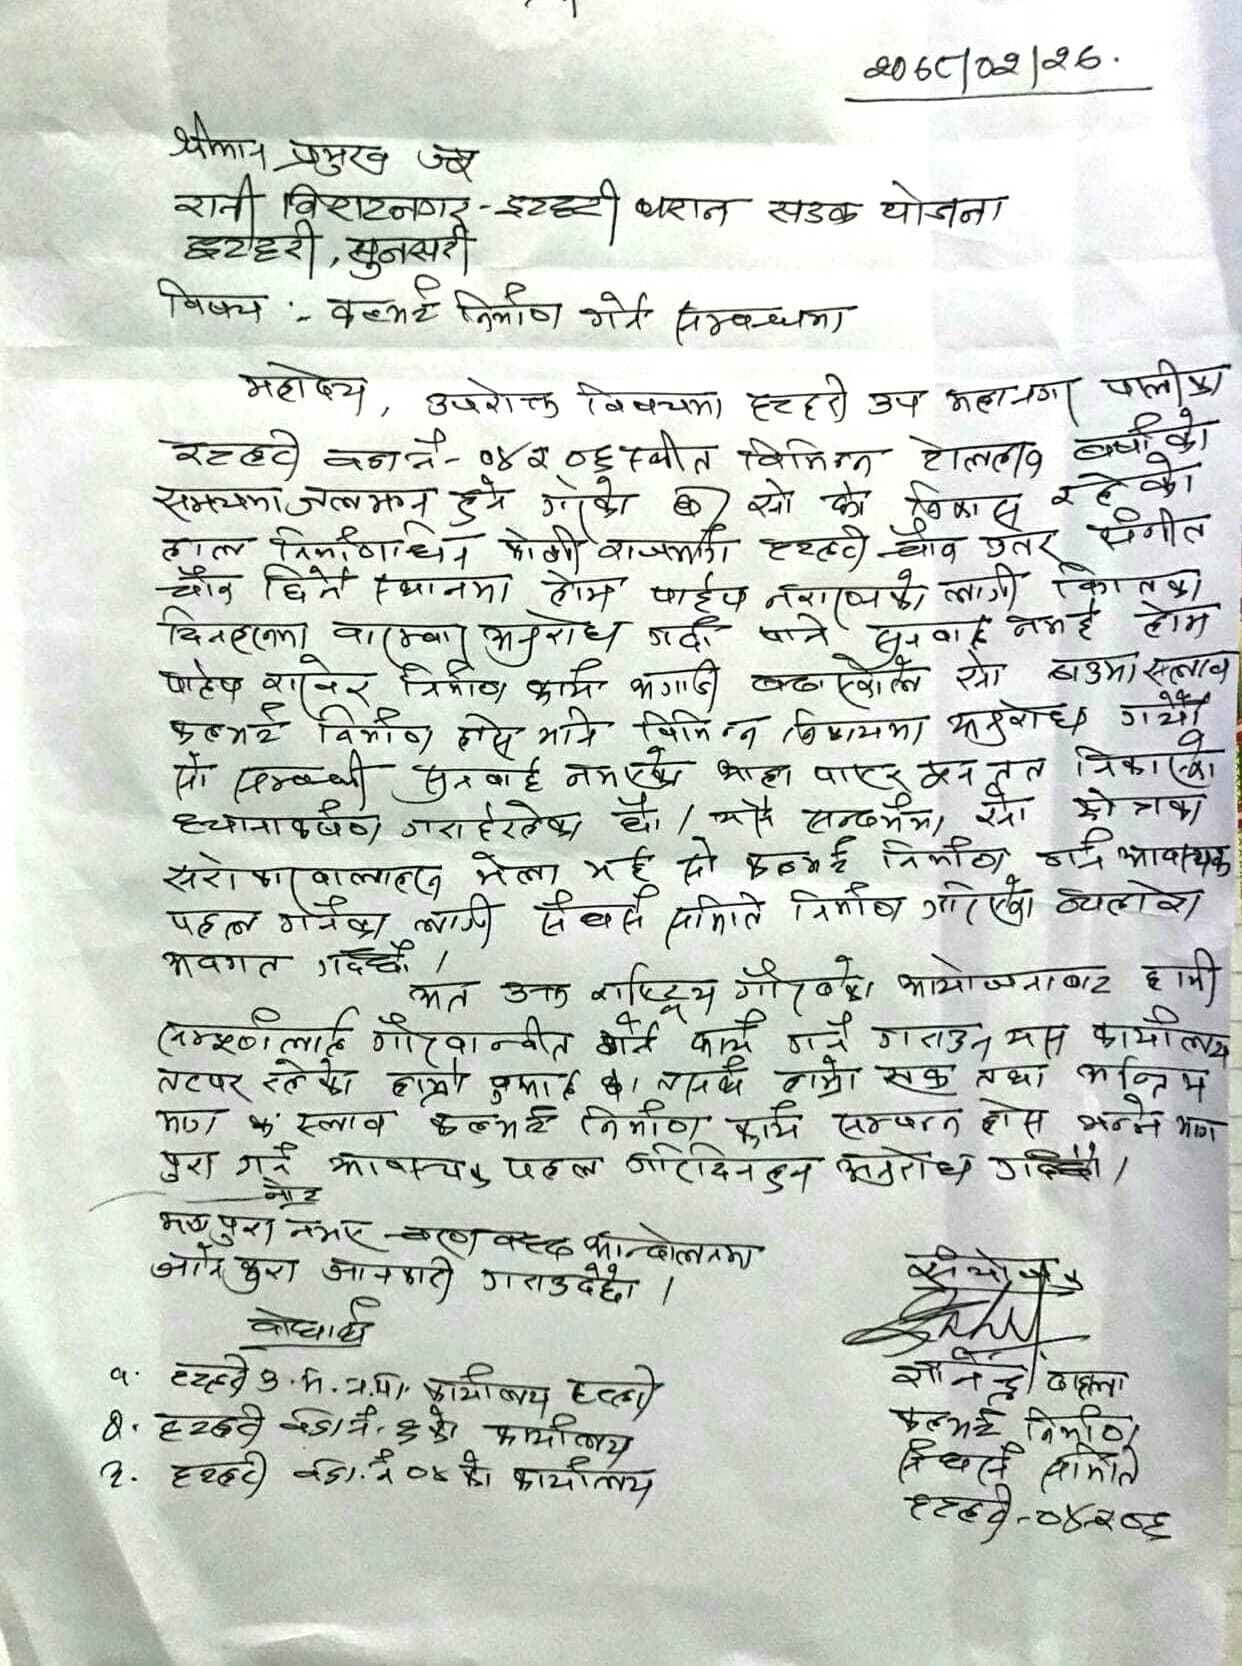 २०७९/०२/२६.
श्रीमान प्रमुख ज्यू
रानी विराटनगर - इटहरी धरान सडक योजना
इटहरी, सुनसरी
विषय :- कल्भर्ट निर्माण गर्ने सम्बन्धमा
महोदय, उपरोक्त विषयमा इटहरी उप महानगर पालीका
इटहरी वडा नं - ०४ र ०६ स्थीत विभिन्न टोलहरु वर्षाको
समयमा जलमग्न हुने गरेको छ सो को निकास रहेको
हाल निर्माणाधिन कोशी राजमार्ग इटहरी चौक उत्तर संगीत
चौक छिर्ने स्थानमा होम पाईप नराख्नको लागी विगतका
दिनहरुमा वारम्वार अनुरोध गर्दा पनि सुनवाई नभई होम
पाईप राखेर निर्माण कार्य अगाडी बढाएकोले सो ठाउमा स्लाव
कल्भर्ट निर्माण होस भनि विभिन्न निकायमा अनुरोध गर्यौ
सो सम्बन्धी सुनवाई नभएको निकालेको
ध्यानाकर्षण गराईरहेका छौ । यसै सन्दर्भमा सो क्षेत्रका
सरोकारवालाहरु भेला भई सो कल्भर्ट निर्माण गर्न आवश्यक
पहल गर्नका लागी संघर्ष समिति निर्माण गरिएको व्यहोरा
अवगत गर्दछौ ।
अत उक्त राष्ट्रिय गौरवको आयोजनाबाट हामी
सम्पूर्णलाई गौरवान्वीत गर्ने कार्य गर्न गराउन यस कार्यालय
तटपर रहेको हाम्रो तसर्थ हाम्रो एक तथा अन्तिम
माग स्लाव कल्भर्ट निर्माण कार्य सम्पन्न होस भन्ने माग
पुरा गर्न आवश्यक पहल गरिदिनहुन अनुरोध गर्दछौ ।
नोट
माग पुरा नभए चरण वद्ध आन्दोलनमा
जाने कुरा जानकारी गराउदछौ ।
संयोजक
बोधार्थ
ज्ञानेन्द्र
१. इटहरी उ.म.न.पा. कार्यालय इटहरी
कल्भर्ट निर्माण
२. इटहरी वडा नं. ६ को कार्यालय
संघर्ष समिति
३. इटहरी वडा. नं ०४ को कार्यालय
इटहरी - ०४ र ०६